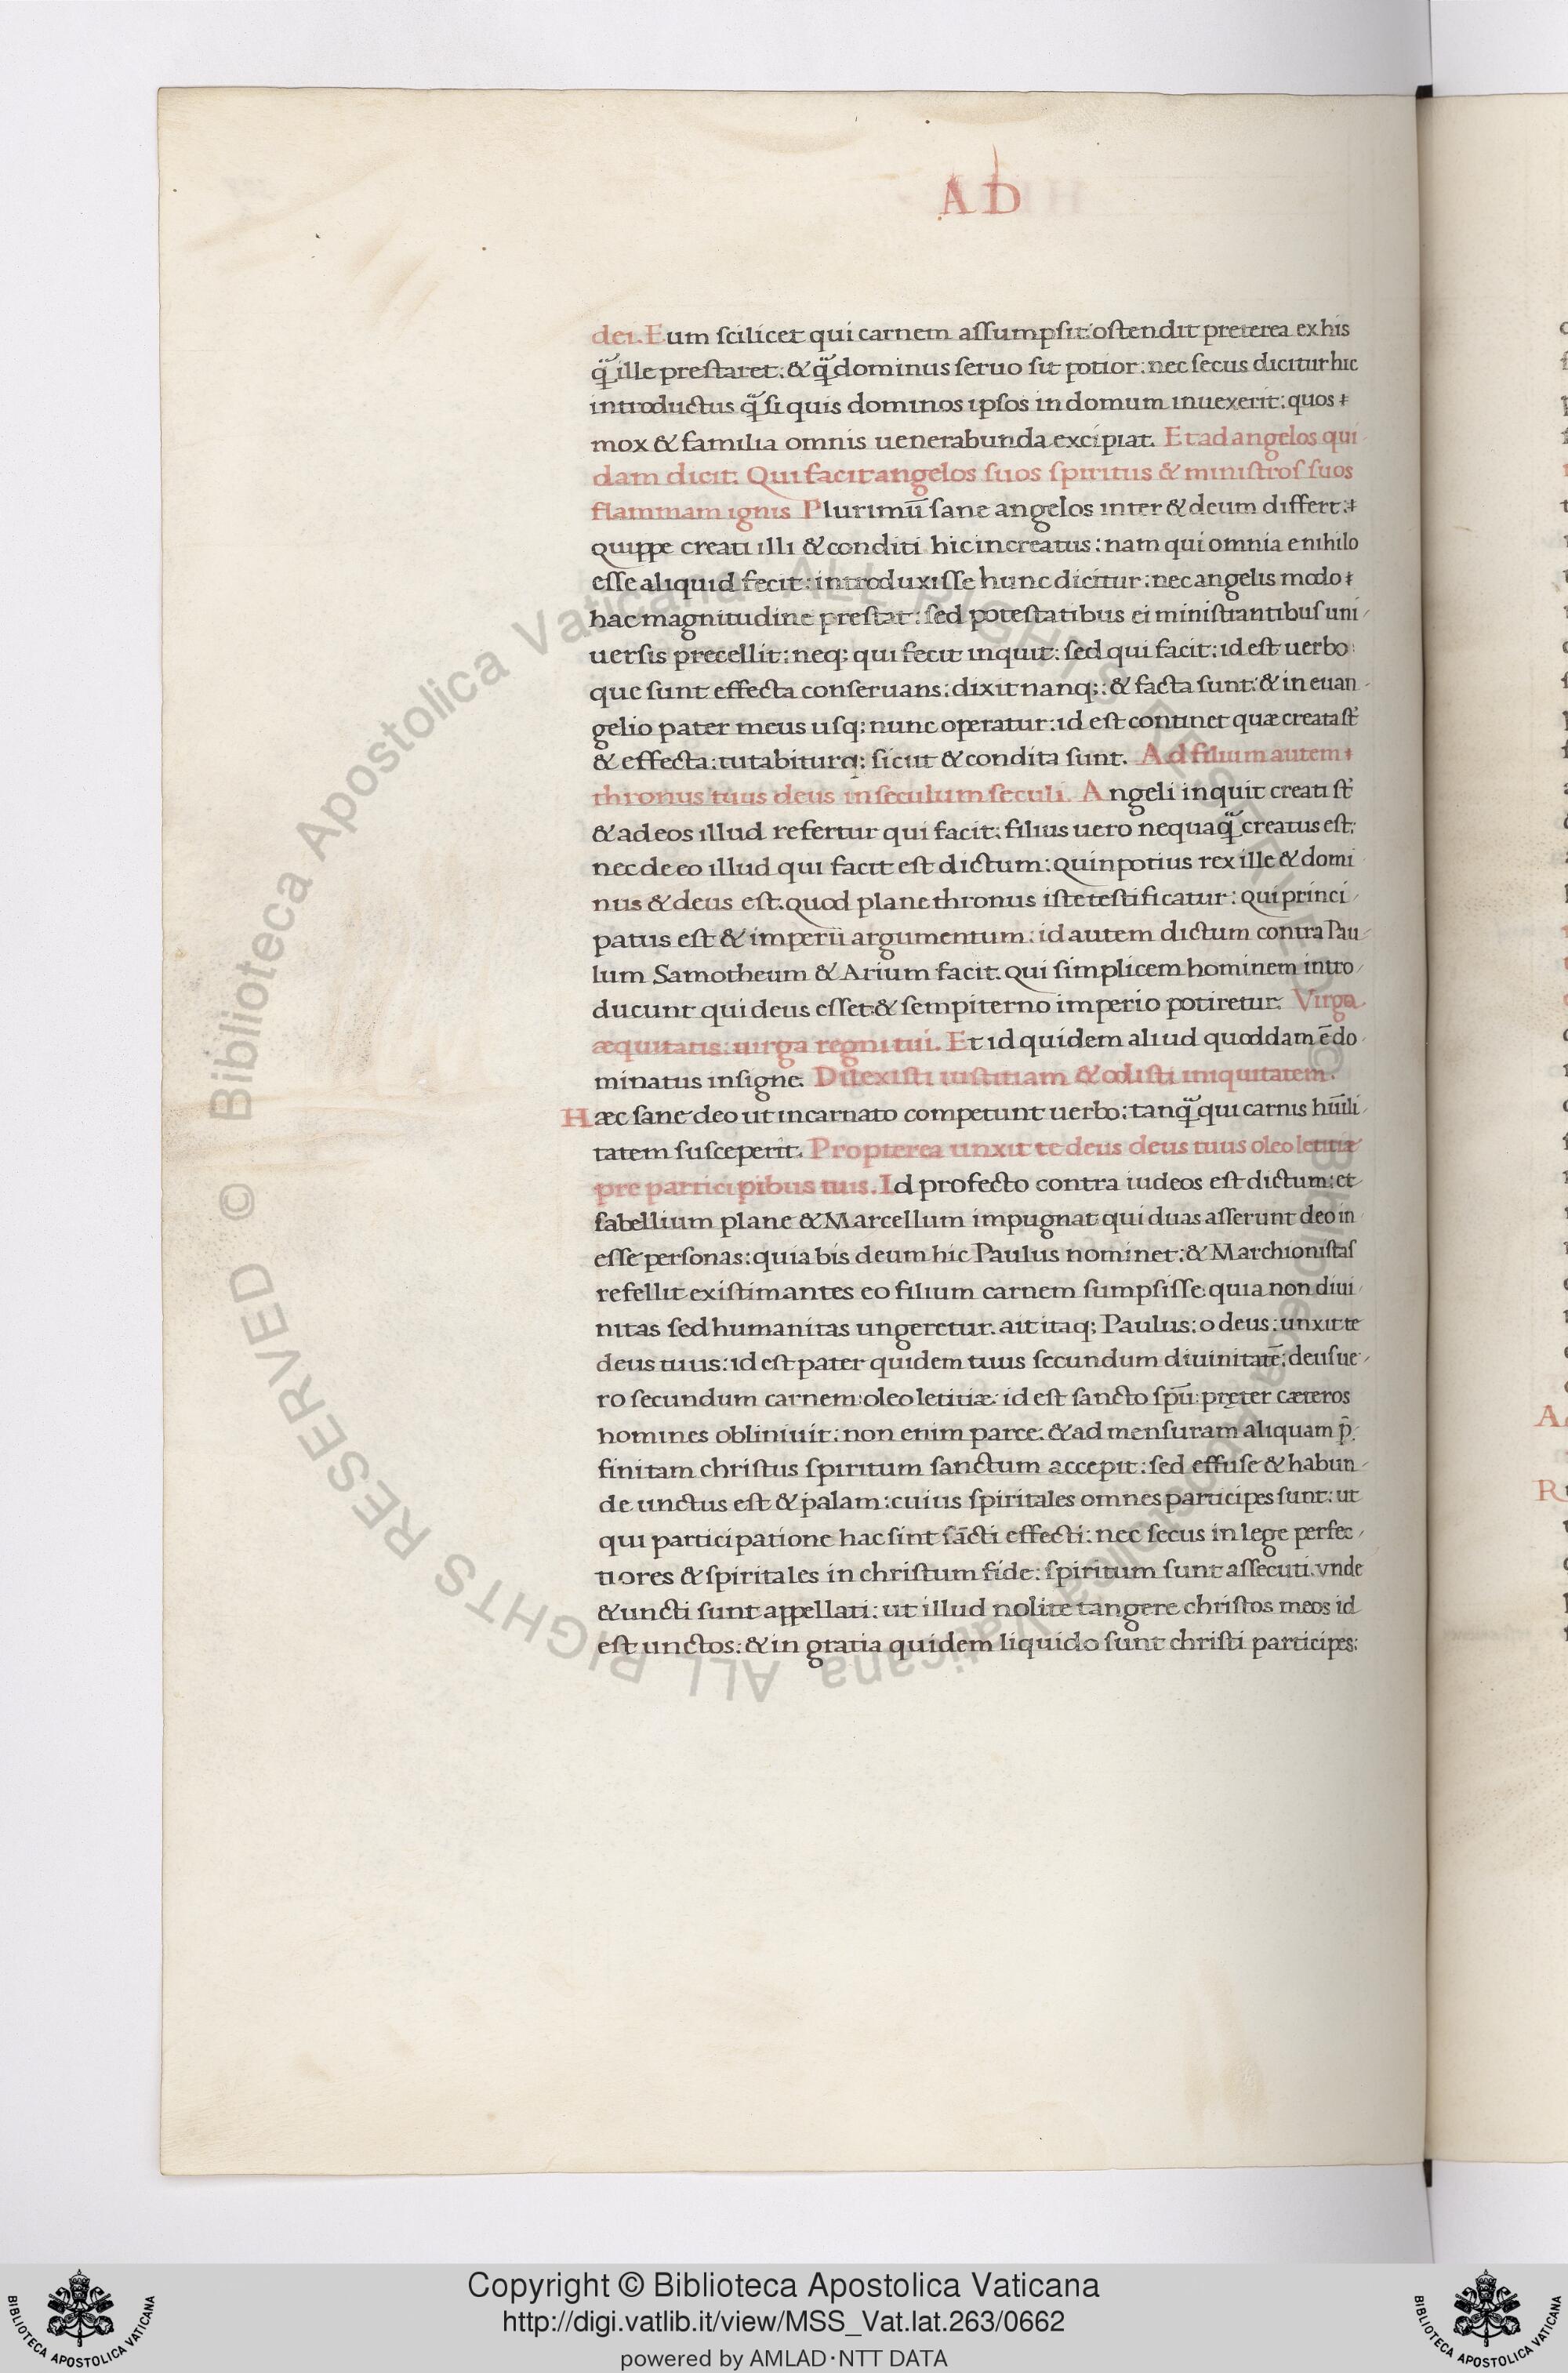 AD
dei. Eum scilicet qui carnem assumpsit: ostendit preterea ex his
q̃ ille prestaret: & q̃ dominus seruo sit potior: nec secus dicitur hic
introductus q̃ si quis dominos ipsos in domum inuexerit: quos
mox & familia omnis uenerabunda excipiat. Et ad angelos qui
dam dicit. Qui facit angelos suos spiritus & ministros suos
flammam ignis Plurimū sane angelos inter & deum differt:
Quippe creati illi & conditi hic increatus: nam qui omnia e nihilo
esse aliquid fecit: introduxisse hunc dicitur: nec angelis modo
hac magnitudine prestat: sed potestatibus ei ministrantibus uni
uersis precellit: neq; qui fecit inquit: sed qui facit: id est uerbo
que sunt effecta conseruans: dixit nanq;: & facta sunt: & in euan
gelio pater meus usq; nunc operatur: id est continet quæ creata st̄
& effecta: tutabiturq; sicut & condita sunt. Ad filium autem
thronus tuus deus in seculum seculi. Angeli inquit creati st̄
& ad eos illud refertur qui facit: filius uero nequaq̃ creatus est:
nec de eo illud qui facit est dictum: Quin potius rex ille & domi
nus & deus est. Quod plane thronus iste testificatur: Qui princi
patus est & imperii argumentum: id autem dictum contra Pau
lum Samotheum & Arium facit. Qui simplicem hominem intro
ducunt qui deus esset & sempiterno imperio potiretur. Virga
æquitatis: uirga regni tui. Et id quidem aliud quoddam ē do
minatus insigne. Dilexisti iustitiam & odisti iniquitatem.
Hæc sane deo ut incarnato competunt uerbo: tanq̃ qui carnis hūili
tatem susceperit. Propterea unxit te deus deus tuus oleo letitiæ
pre participibus tuis. Id profecto contra iudeos est dictum: et
sabellium plane & Marcellum impugnat qui duas asserunt deo in
esse personas: quia bis deum hic Paulus nominet: & Marchionistas
refellit existimantes eo filium carnem sumpsisse: quia non diui
nitas sed humanitas ungeretur. ait itaq; Paulus: o deus: unxit te
deus tuus: id est pater quidem tuus secundum diuinitatē: deus ue
ro secundum carnem: oleo letitiæ: id est sancto spū: pręter cæteros
homines obliniuit: non enim parce: & ad mensuram aliquam p̄
finitam christus spiritum sanctum accepit: sed effuse & habun
de unctus est & palam: cuius spiritales omnes participes sunt: ut
qui participatione hac sint sācti effecti: nec secus in lege perfec
tiores & spiritales in christum fide: spiritum sunt assecuti. vnde
& uncti sunt appellati: ut illud nolite tangere christos meos id
est unctos: & in gratia quidem liquido sunt christi participes:
Copyright © Biblioteca Apostolica Vaticana
http://digi.vatlib.it/view/MSS_Vat.lat.263/0662
powered by AMLAD·NTT DATA
BIBLIOTECA APOSTOLICA VATICANA
BIBLIOTECA APOSTOLICA VATICANA
© Biblioteca Apostolica Vaticana ALL RIGHTS RESERVED
© Biblioteca Apostolica Vaticana ALL RIGHTS RESERVED